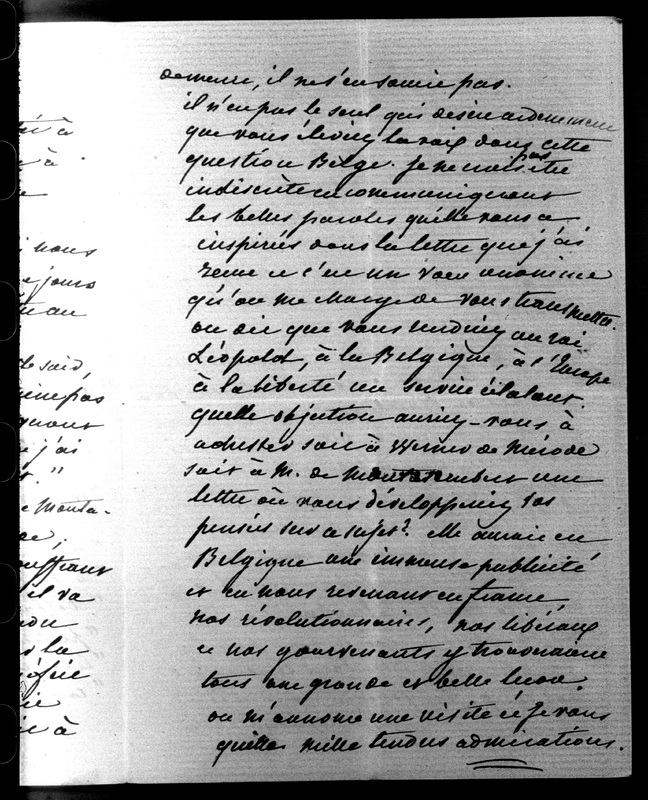 té à
à
nous
jours
au
le said,
pas
j'ai
t."
e Monta-
souffrant
il va
la
à
demeure, il ne s'en soucie pas.
il n'en pas le seul qui desire ardemment
que vous éleviez la voix dans cette
question Belge. Je ne crois pas être
indiscrète en communiquant
les belles paroles qu'elle vous a
inspirées dans la lettre que j'ai
recue et c'en un voeu unanime
qu'on me charge de vous transmettre.
on dit que vous rendriez au roi
Léopold, à la Belgique, à l'Europe
à la liberté un service éclatant.
quelle objection auriez-vous à
adresser soit à Werner de Mérode
soit à M. de Montalembert une
lettre où vous développeriez vos
pensées sur ce sujet? elle aurait en
Belgique une immense publicité
et en nous revenant en france,
nos révolutionnaires, nos libéraux
et nos gouvernants y trouveraient
tous une grande et belle lecon.
on m'annonce une visite et je vous
quitte mille tendres admirations.